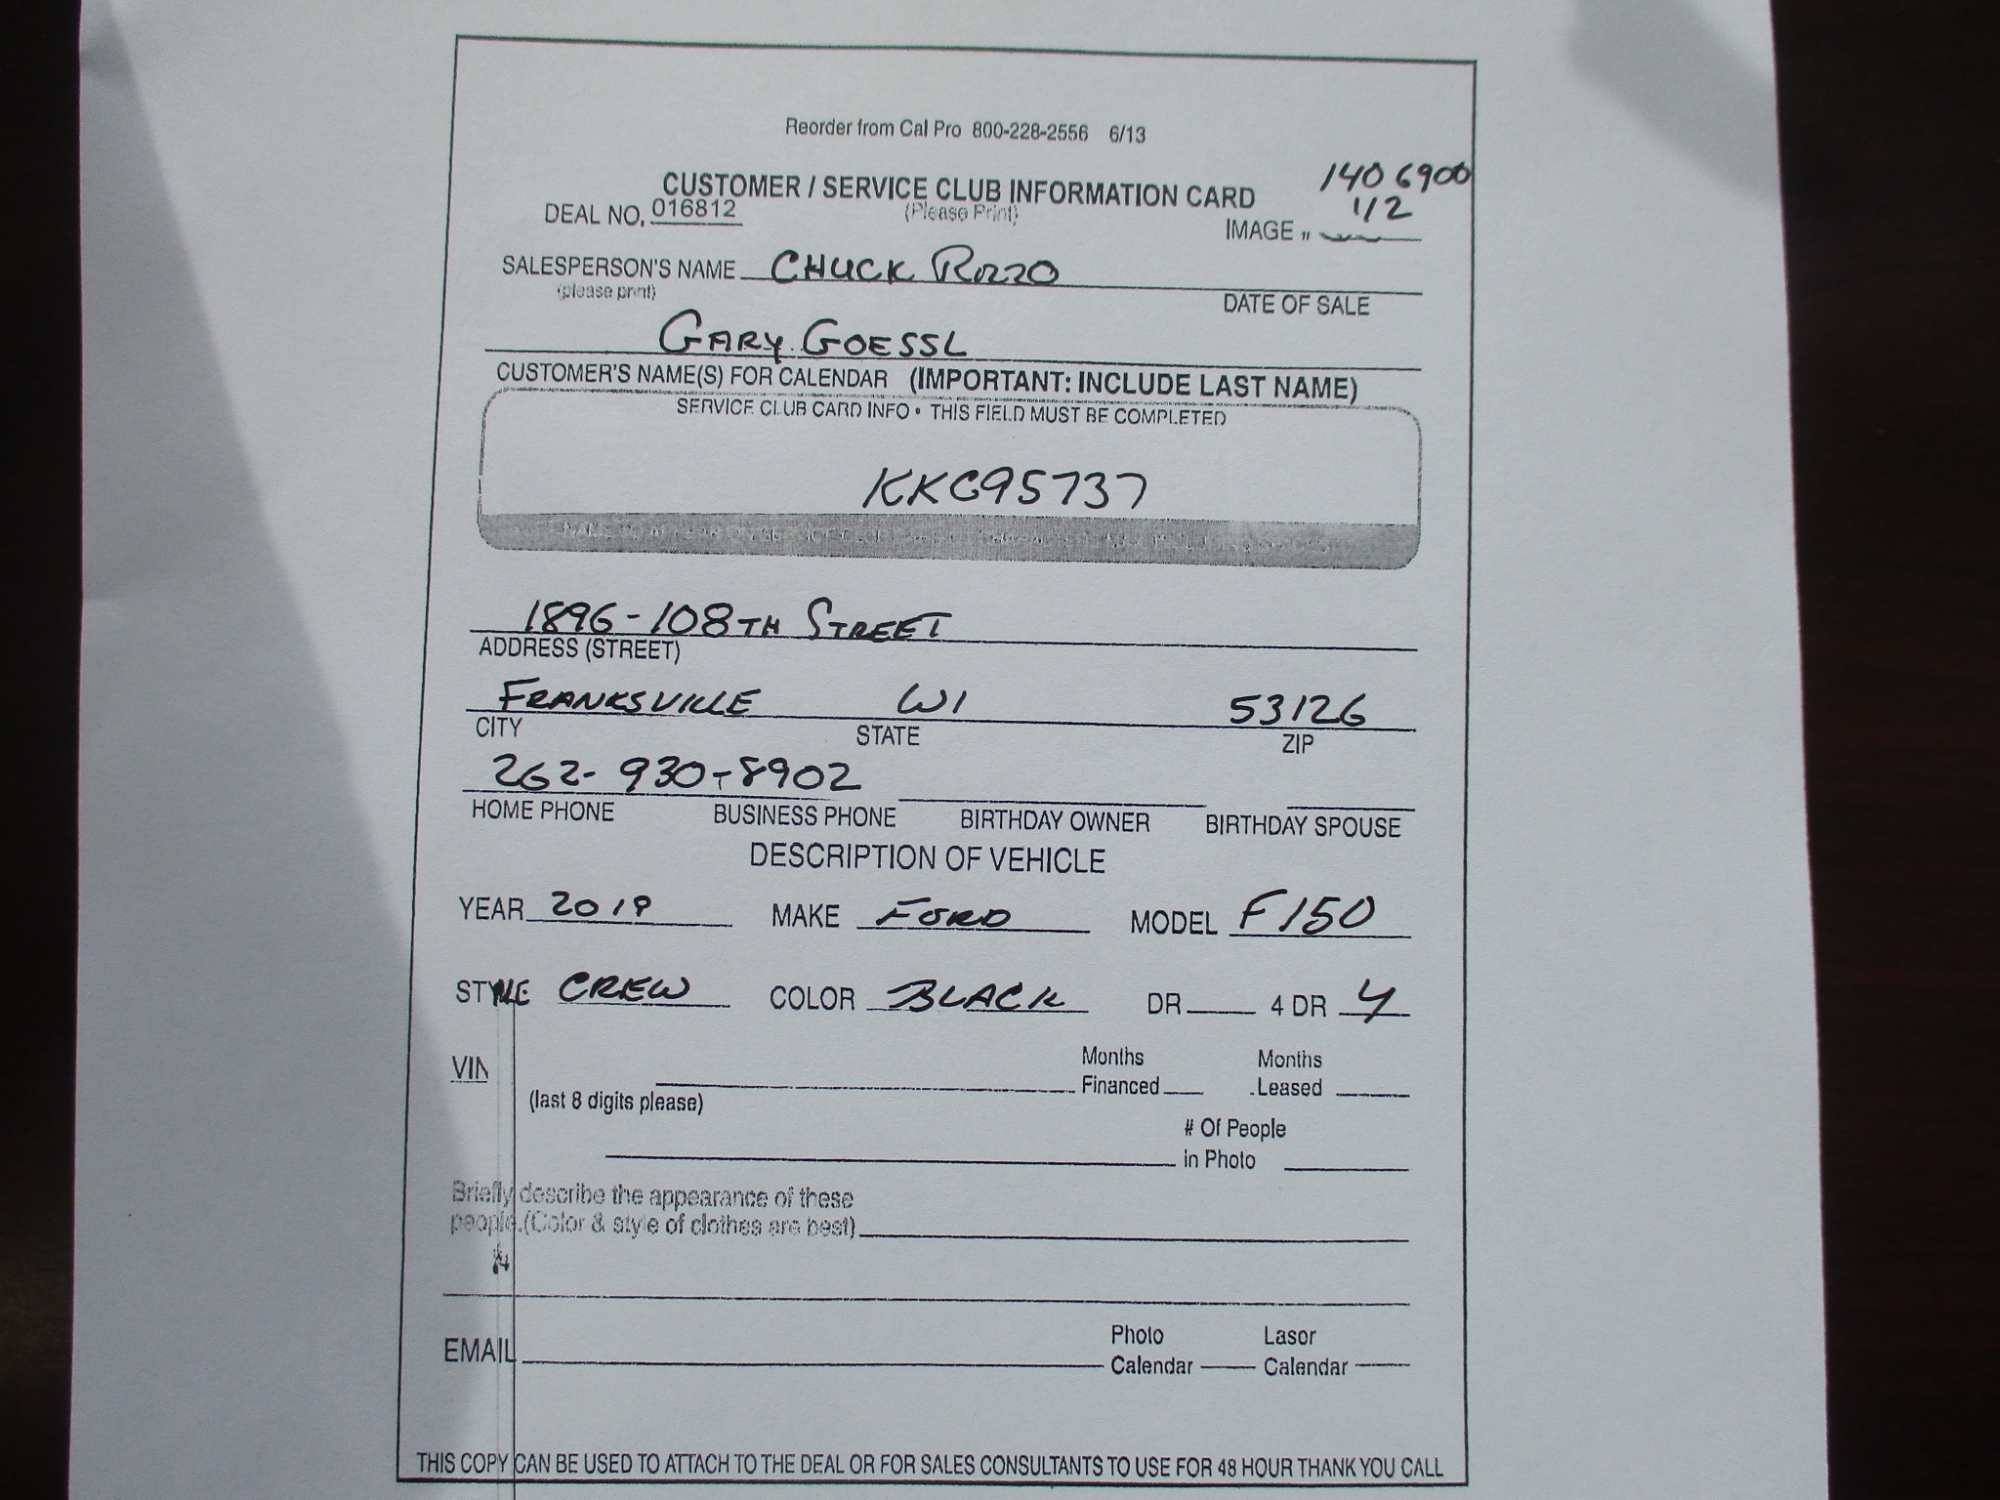 Reorder from Cal Pro 800-228-2556 6/13
1406900
CUSTOMER / SERVICE CLUB INFORMATION CARD
112
DEAL NO. 016812 (Please Print) IMAGE
SALESPERSON'S NAME CHUCK RIZZO
(please print) DATE OF SALE
GARY GOESSL
CUSTOMER'S NAME(S) FOR CALENDAR (IMPORTANT: INCLUDE LAST NAME)
SERVICE CLUB CARD INFO • THIS FIELD MUST BE COMPLETED
KKC95737
1896-108TH STREET
ADDRESS (STREET)
FRANKSVILLE WI 53126
CITY STATE ZIP
262-930-8902
HOME PHONE BUSINESS PHONE BIRTHDAY OWNER BIRTHDAY SPOUSE
DESCRIPTION OF VEHICLE
YEAR 2019 MAKE FORD MODEL F150
STYLE CREW COLOR BLACK DR 4 DR 4
VIN Months Financed Months Leased
(last 8 digits please)
# Of People
in Photo
Briefly describe the appearance of these
people.(Color & style of clothes are best)
EMAIL Photo Calendar Lasor Calendar
THIS COPY CAN BE USED TO ATTACH TO THE DEAL OR FOR SALES CONSULTANTS TO USE FOR 48 HOUR THANK YOU CALL